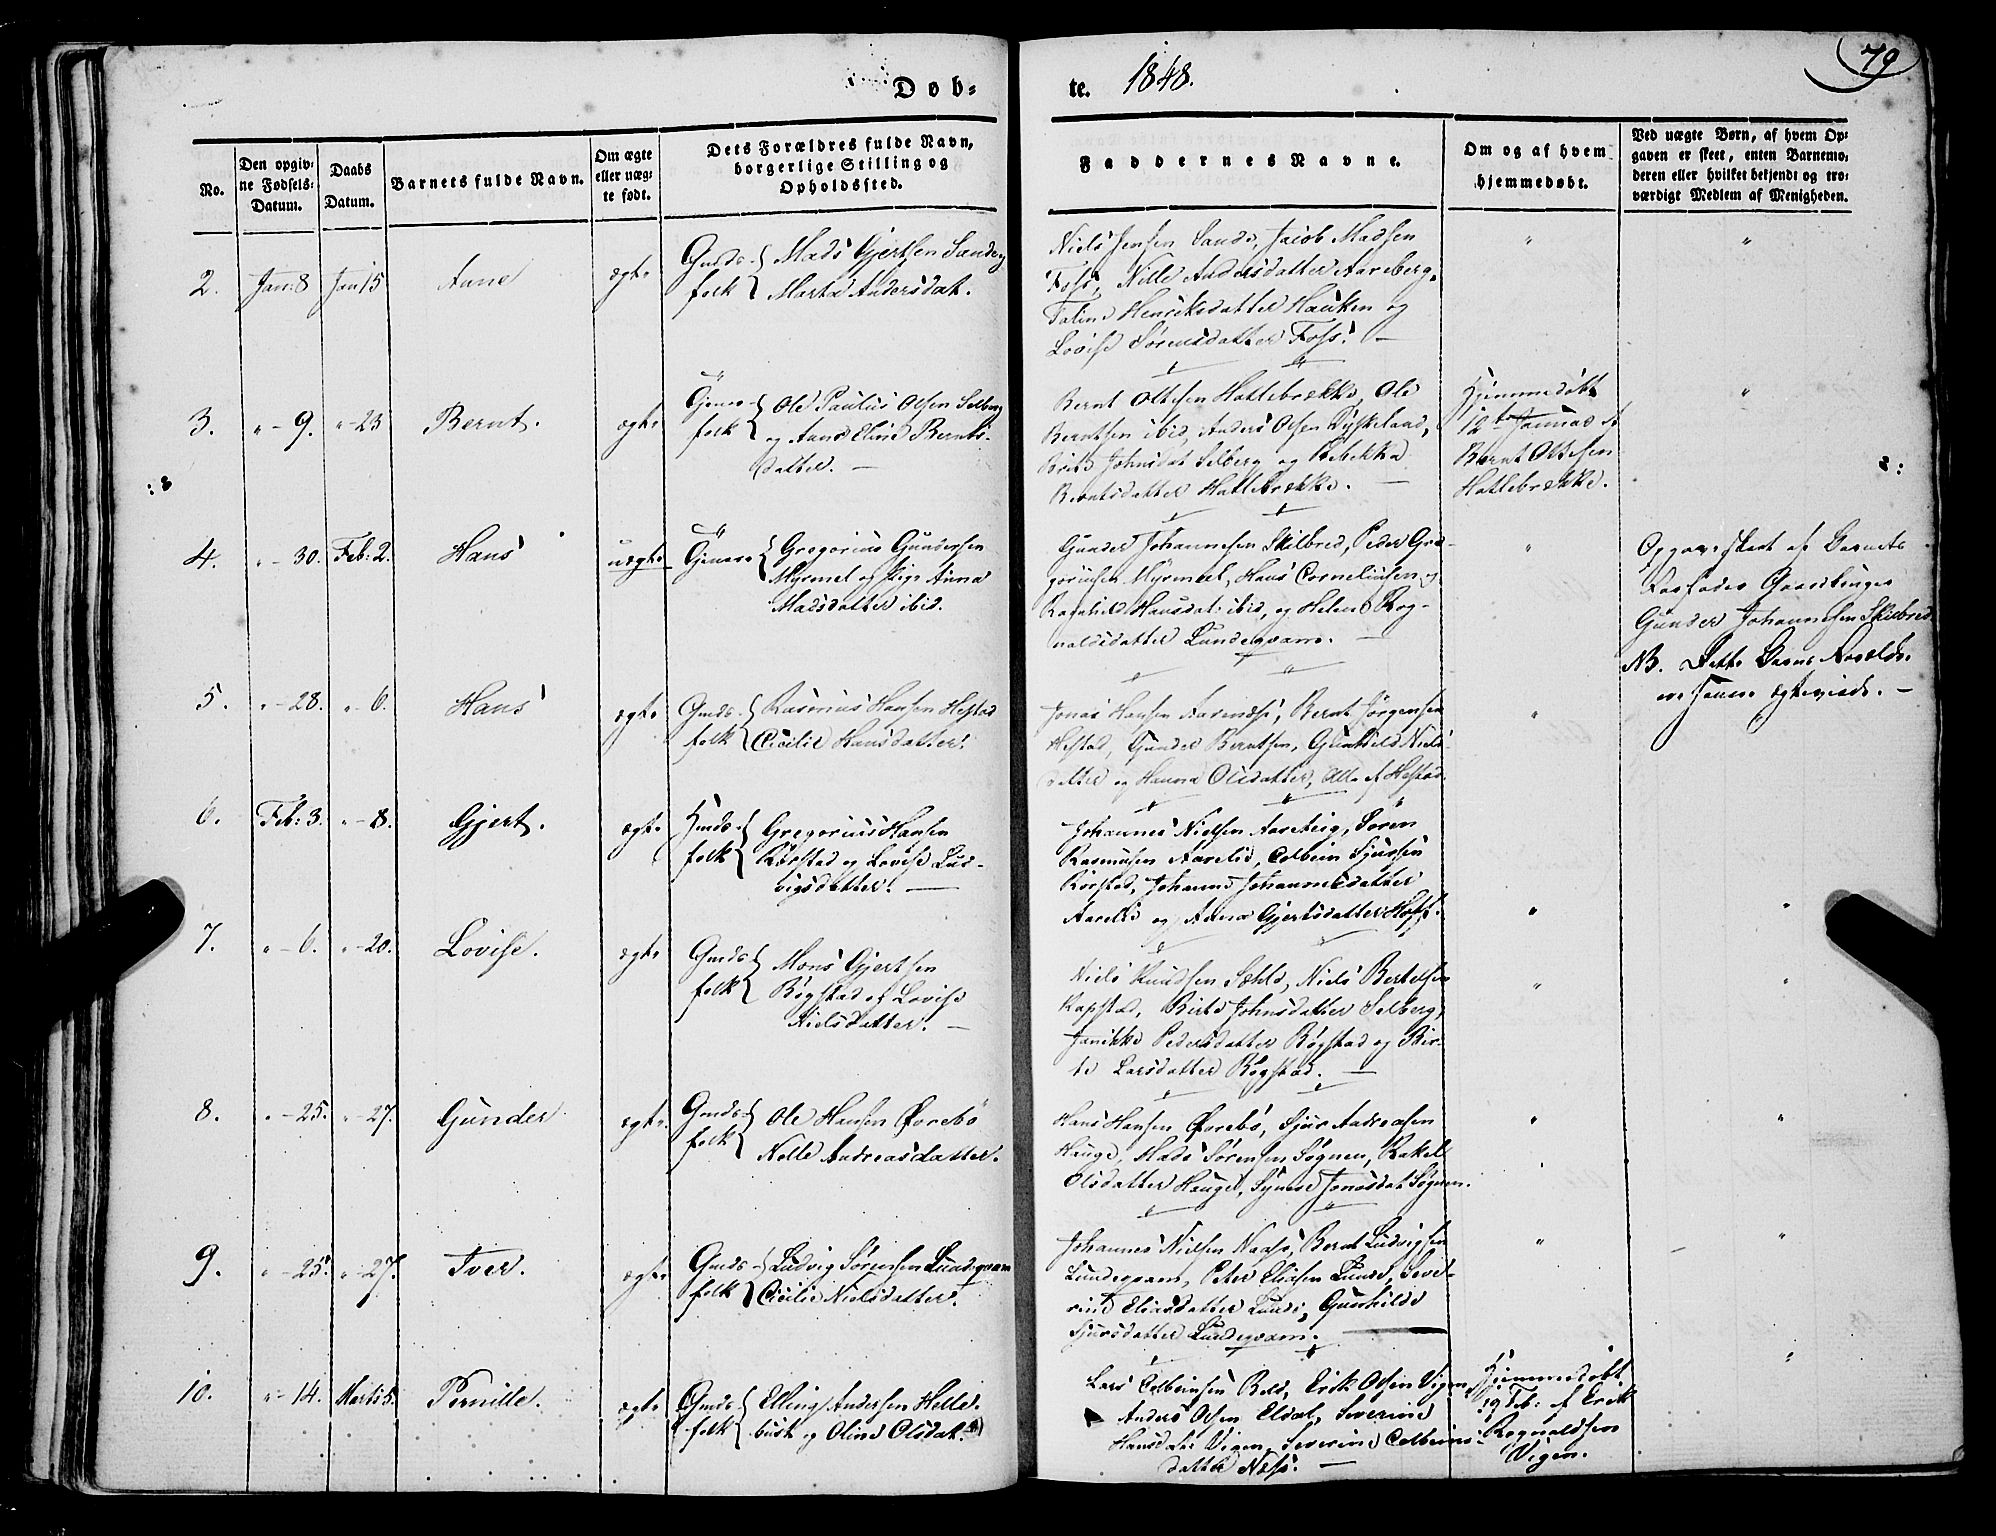 Døb-
te. 1848.
79
No.
Den opgiv-
ne Fødsels-
Datum.
Daabs
Datum.
Barnets fulde Navn.
Om ægte
eller uæg-
te født.
Dets Forældres fulde Navn,
borgerlige Stilling og
Opholdssted.
Faddernes Navne.
Om og af hvem
hjemmedøbt.
Ved uægte Børn, af hvem Op-
gaven er skeet, enten Barnemo-
deren eller hvilket bekjendt og tro-
værdigt Medlem af Menigheden.
2. Jan: 8 Jan 15 Anne ægte
Gmds-
folk
Mads Gjertsen Sande og
Marta Andersdat.
Niels Jensen Sande, Jacob Madsen
Foss, Nille Andersdatter Aareberg,
Taline Henriksdatter Hauken og
Lovise Sørensdatter Foss.
3. " - 9. " - 23 Bernt. ægte
folk
Ole Paulus Olsen Selberg
og Anne Eline Bernts-
datter.
Bernt Ottesen Hatlebrække, Ole
Berntsen ibid, Anders Olsen
Birte Johnsdat Selberg og Rebekka
Berntsdatter Hatlebrække.
Hjemmedøbt
12te Januar af
Bernt Ottesen
Hatlebrække.
4. " - 30. Feb: 2. Hans uægte
Gregorius Gundersen
Myrmel og Pige Anna
Madsdatter ibid.
Gunder Johannesen Skilbred, Peder Gre-
goriusen Myrmel, Hans Corneliusen og
Hansdat: ibid, og Helene Rog-
naldsdatter Lundeqvam.
Opgave skeet af Barnets
Farfader
Gunder Johannesen Skilbred
NB. Dette Barns Forældre
ere senere ægteviede.
5. " - 28. " - 6. Hans ægte
Gmds-
folk
Rasmus Hansen Hestad
Cicilie Hansdatter.
Jonas Hansen, Bernt Jørgensen
Hestad, Gunder Berntsen, Gunhild Niels-
datter og Hanna Olsdatter, Alle af Hestad.
6. Feb: 3. " - 8. Gjert. ægte
Hmds-
folk
Gregorius Hansen
Rørstad og Lovise Lud-
vigsdatter.
Johannes Nielsen Aareteig, Søren
Rasmusen Aarelid, Colbein Sjursen
Rørstad, Johanne Johannesdatter
Aarelid og Anna Gjertsdatter Hoff.
7. " - 6. " - 20. Lovise. ægte
Gmds
folk
Mons Gjertsen
Bøgstad og Lovise
Nielsdatter.
Niels Knudsen Sæhle, Niels Bertelsen
Kapstad, Birte Johnsdatter Selberg,
Janikke Pedersdatter Bøgstad og Bir-
te Larsdatter Bøgstad.
8. " - 25. " - 27. Gunder ægte.
Gmds-
folk
Ole Hansen Ørebø
Nelle Andreasdatter.
Hans Hansen Ørebø, Sjur Andreasen
Hauge, Mads Sørensen Søgnen, Rakel
Olsdatter Hauge, Synne Jonasdat Søgnen.
9. " - 25. " - 27. Iver. ægte
Gmds-
folk
Ludvig Sørensen Lundeqvam
Cicilie Nielsdatter.
Johannes Nielsen Naase, Bernt Ludvigsen
Lundeqvam, Peter Eliasen Lunde, Seve-
rine Eliasdatter Lunde, Gunhilde
Sjursdatter Lundeqvam.
10. " - 14. Marts 5. Pernille. ægte
Gmds-
folk
Elling Andersen Helle-
bust og Oline Olsdat.
Lars Colbeinsen Reed, Erik Olsen Vigen,
Anders Olsen Eldal, Severine
Hansdatt Vigen, Severine Colbeins-
datter Næss.
Hjemmedøbt
19 Feb: af Erik
Rognaldsen
Vigen.